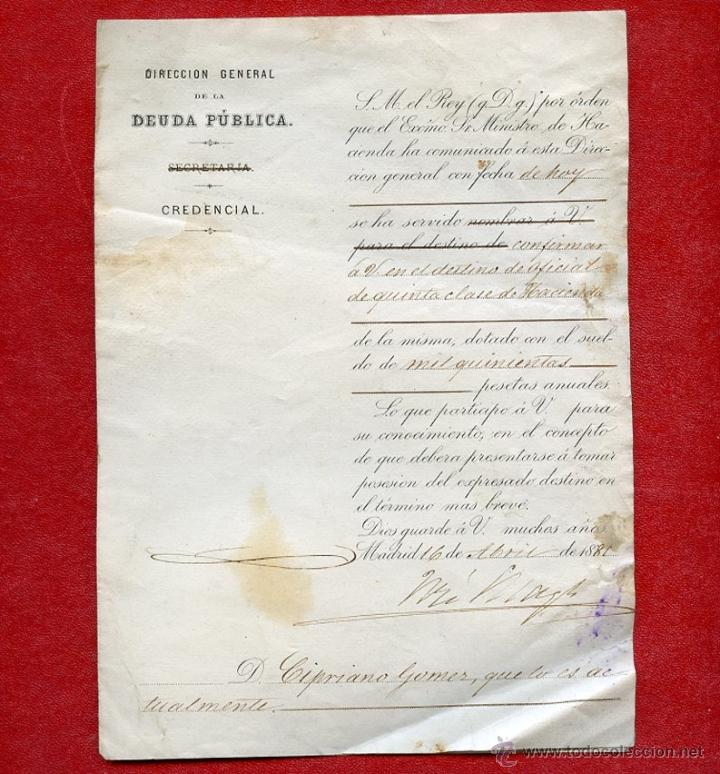 DIRECCION GENERAL
DE LA
DEUDA PÚBLICA.
SECRETARIA.
CREDENCIAL.
S. M. el Rey (q. D. g.) por órden
que el Excmo. Sr. Ministro de Ha-
cienda ha comunicado á esta Direc-
cion general con fecha de hoy
se ha servido nombrar á V.
para el destino de confirmar
á V. en el destino de oficial
de quinta clase de Hacienda
de la misma, dotado con el suel-
do de mil quinientas
pesetas anuales.
Lo que participo á V. para
su conocimiento, en el concepto
de que deberá presentarse á tomar
posesion del expresado destino en
el término mas breve.
Dios guarde á V. muchos años.
Madrid 16 de Abril de 1881
D. Cipriano Gomez, que lo es ac-
tualmente.
todocoleccion
www.todocoleccion.net